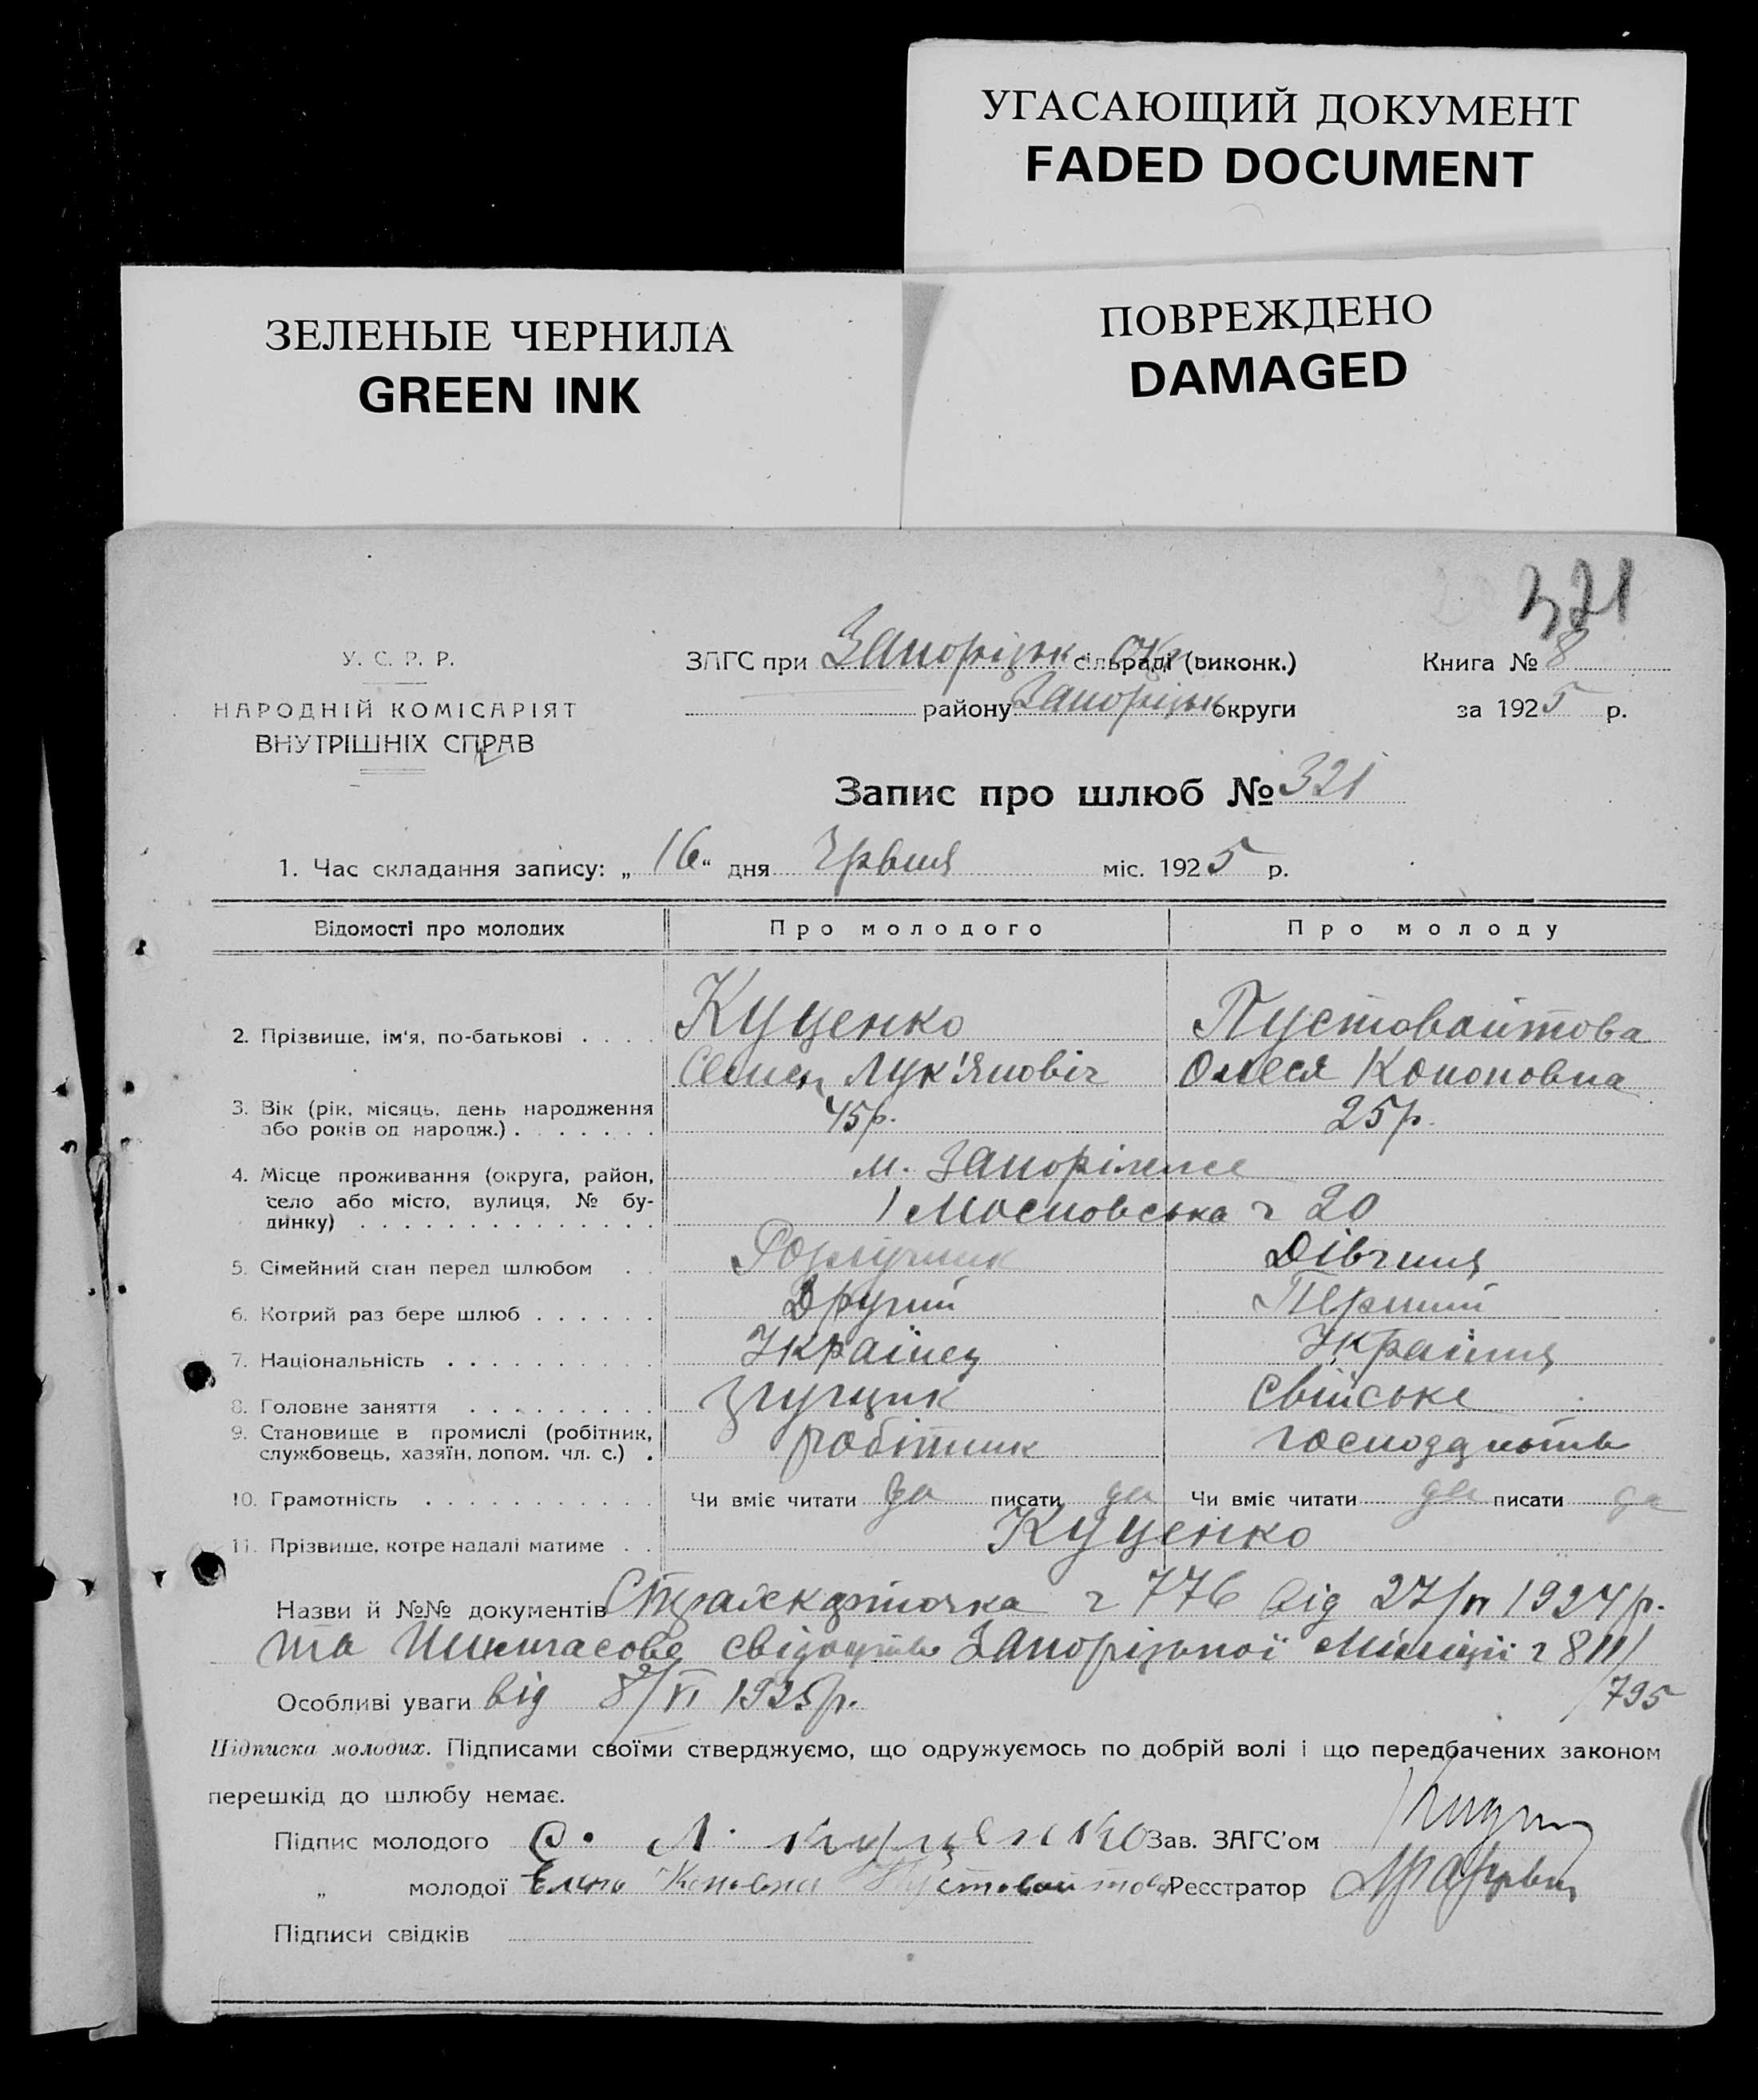 УГАСАЮЩИЙ ДОКУМЕНТ
FADED DOCUMENT
ЗЕЛЕНЫЕ ЧЕРНИЛА
GREEN INK
ПОВРЕЖДЕНО
DAMAGED
321
У. С. Р. Р.
НАРОДНІЙ КОМІСАРІЯТ
ВНУТРІШНІХ СПРАВ
ЗАГС при Запорізьк окр сільраді (виконк.)
району Запорізьк округи
Книга № 8
за 1925 р.
Запис про шлюб № 321
1. Час складання запису: „16“ дня Червня міс. 1925 р.
Відомості про молодих Про молодого Про молоду
2. Прізвище, ім'я, по-батькові . . . . Куценко Пустовайтова
Семен Лук'яновіч Олеся Кононовна
3. Вік (рік, місяць, день народження або років од народж.) . . . . . . . 45р. 25р.
4. Місце проживання (округа, район, село або місто, вулиця, № будинку) . . . . . . . . . . . . . . м. Запоріжже
Московська ч 20
5. Сімейний стан перед шлюбом . . Розлучник Дівчина
6. Котрий раз бере шлюб . . . . . . Другий Перший
7. Національність . . . . . . . . . . Українец Українця
8. Головне заняття . . . . . . . . . Свійське
9. Становище в промислі (робітник, службовець, хазяїн, допом. чл. с.) . робітник
10. Грамотність . . . . . . . . . . . Чи вміє читати да писати да Чи вміє читати да писати да
11. Прізвище, котре надалі матиме . . Куценко
Назви й №№ документів Страхкарточка ч 776 від 27/VI 1924р.
та свідоцтво Запорізької Міліції ч 811/
/795
Особливі уваги від 8/VI 1925р.
Підписка молодих. Підписами своїми стверджуємо, що одружуємось по добрій волі і що передбачених законом
перешкід до шлюбу немає.
Підпис молодого С. Л. Куценко Зав. ЗАГС'ом
„ молодої Елена Пустовайтова Реєстратор
Підписи свідків